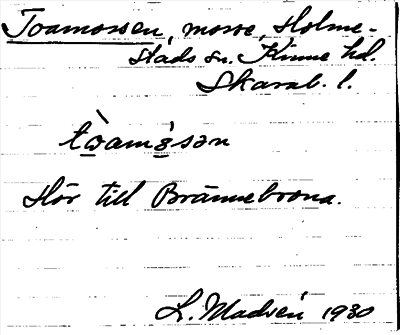 Toamossen, mosse, Holme-
stads sn. Kinne hd.
Skarab. l.
tòam s̀ən
Hör till Brännebrona.
L. Madsén 1930